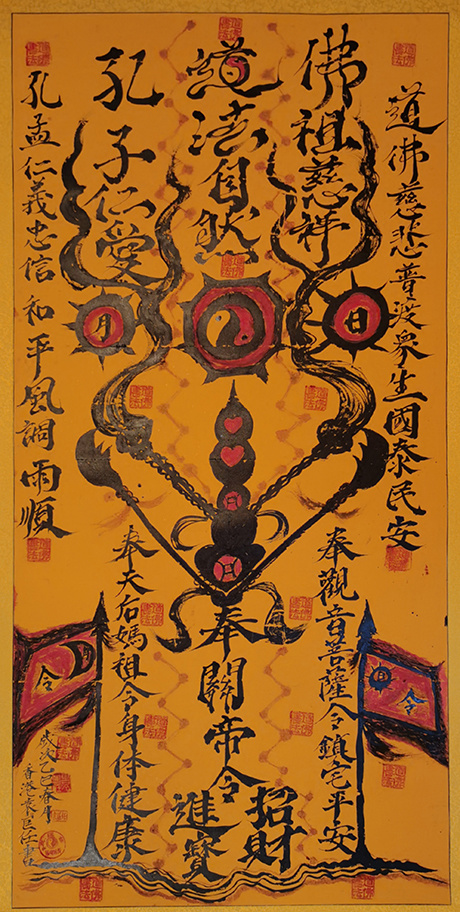 道佛慈悲普渡衆生國泰民安
佛祖慈祥
道法自然
孔子仁愛
孔孟仁義忠信和平風調雨順
日
月
奉觀音菩薩令鎮宅平安
奉關帝令
招財
進寶
奉天后媽祖令身体健康
日令
令
歲次乙巳春月
香港